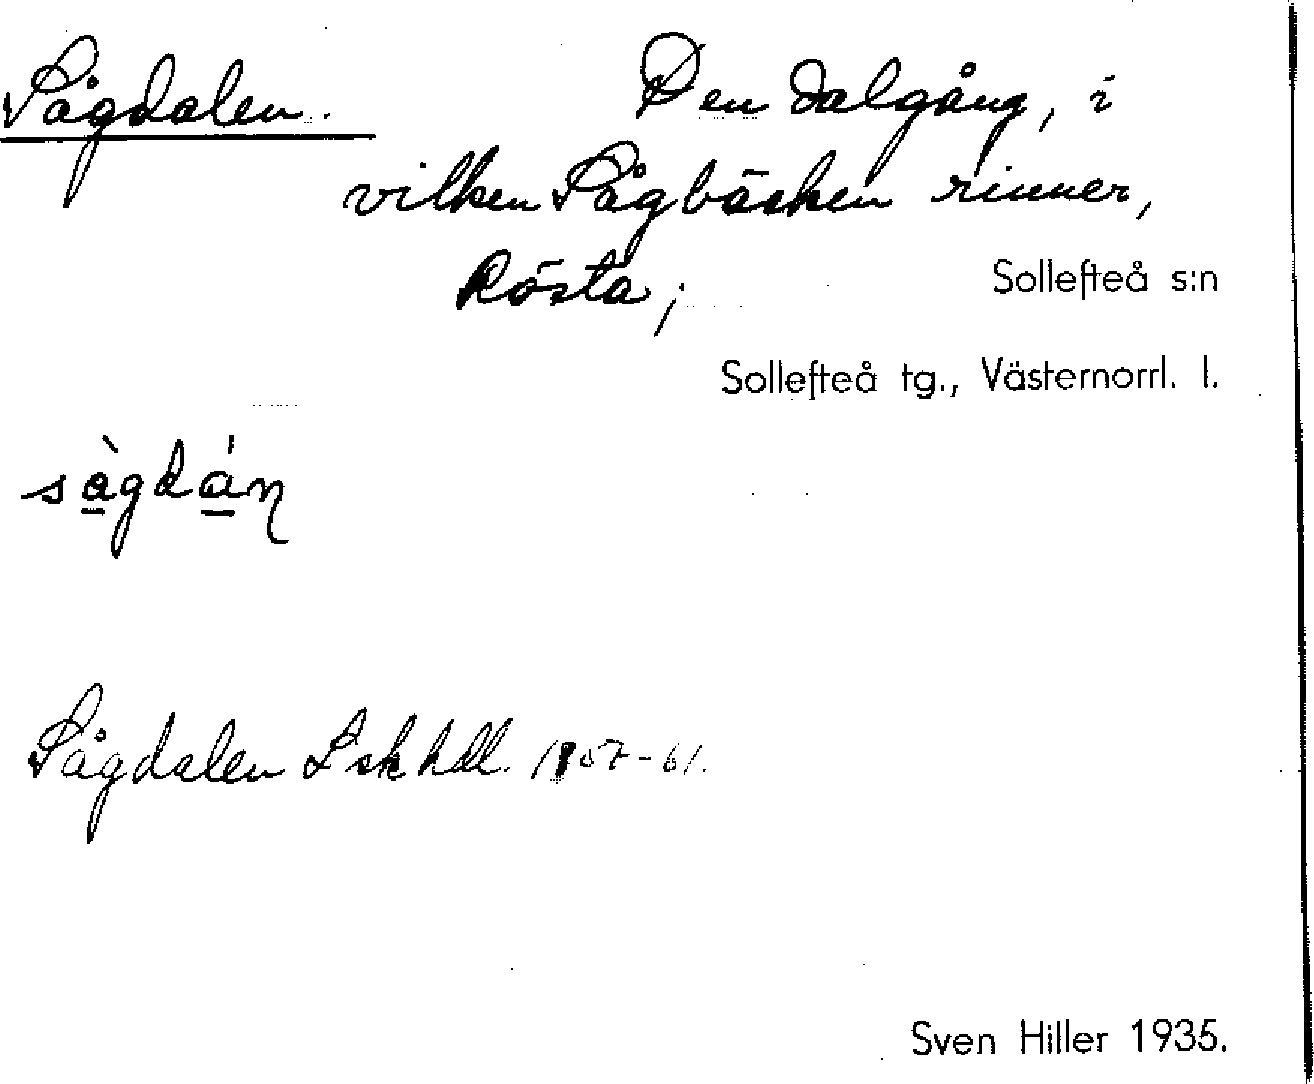 Sågdalen. Den dalgång, i
vilken Sågbäcken rinner,
Rösta; Sollefteå s:n
Sollefteå tg., Västernorrl. l.
sàgdán
Sågdalen Lskhdl. 1857-61.
Sven Hiller 1935.